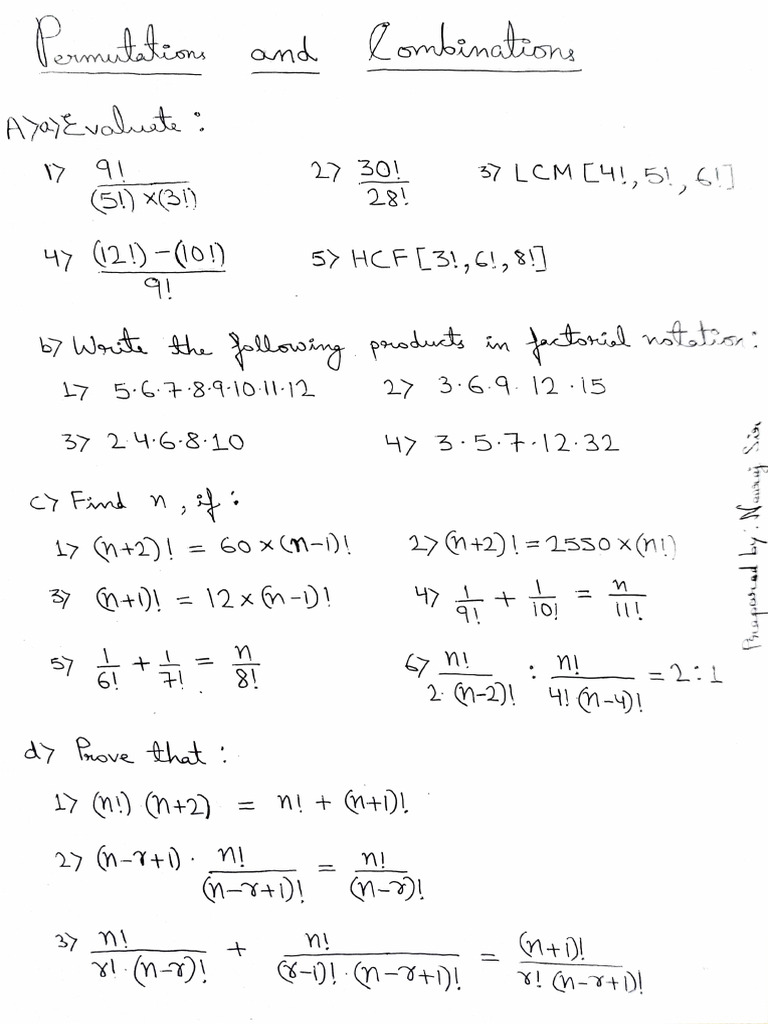 Permutations and Combinations
A> a> Evaluate :
1> 9! / (5!) ×(3!) 2> 30! / 28! 3> LCM [4!, 5!, 6!]
4> (12!) – (10!) / 9! 5> HCF [3!, 6!, 8!]
b> Write the following products in factorial notation :
1> 5·6·7·8·9·10·11·12 2> 3·6·9·12·15
3> 2·4·6·8·10 4> 3·5·7·12·32
c> Find n, if :
1> (n+2)! = 60 × (n–1)! 2> (n+2)! = 2550 × (n!)
3> (n+1)! = 12 × (n–1)! 4> 1/9! + 1/10! = n/11!
5> 1/6! + 1/7! = n/8! 6> n! / 2·(n–2)! : n! / 4!(n–4)! = 2:1
d> Prove that :
1> (n!) (n+2) = n! + (n+1)!
2> (n–r+1) · n! / (n–r+1)! = n! / (n–r)!
3> n! / r!·(n–r)! + n! / (r–1)!·(n–r+1)! = (n+1)! / r!(n–r+1)!
Prepared by : Sir